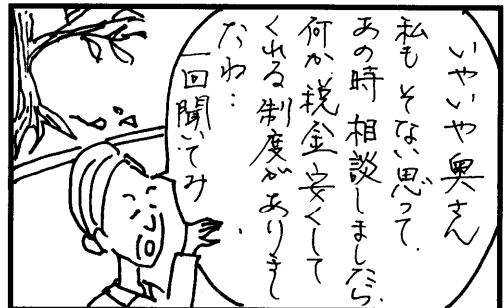 いやいや奥さん
私も そない思って、
あの時 相談しましたら、
何か 税金安くして
くれる制度がありまし
たわ…
一回聞いてみ、